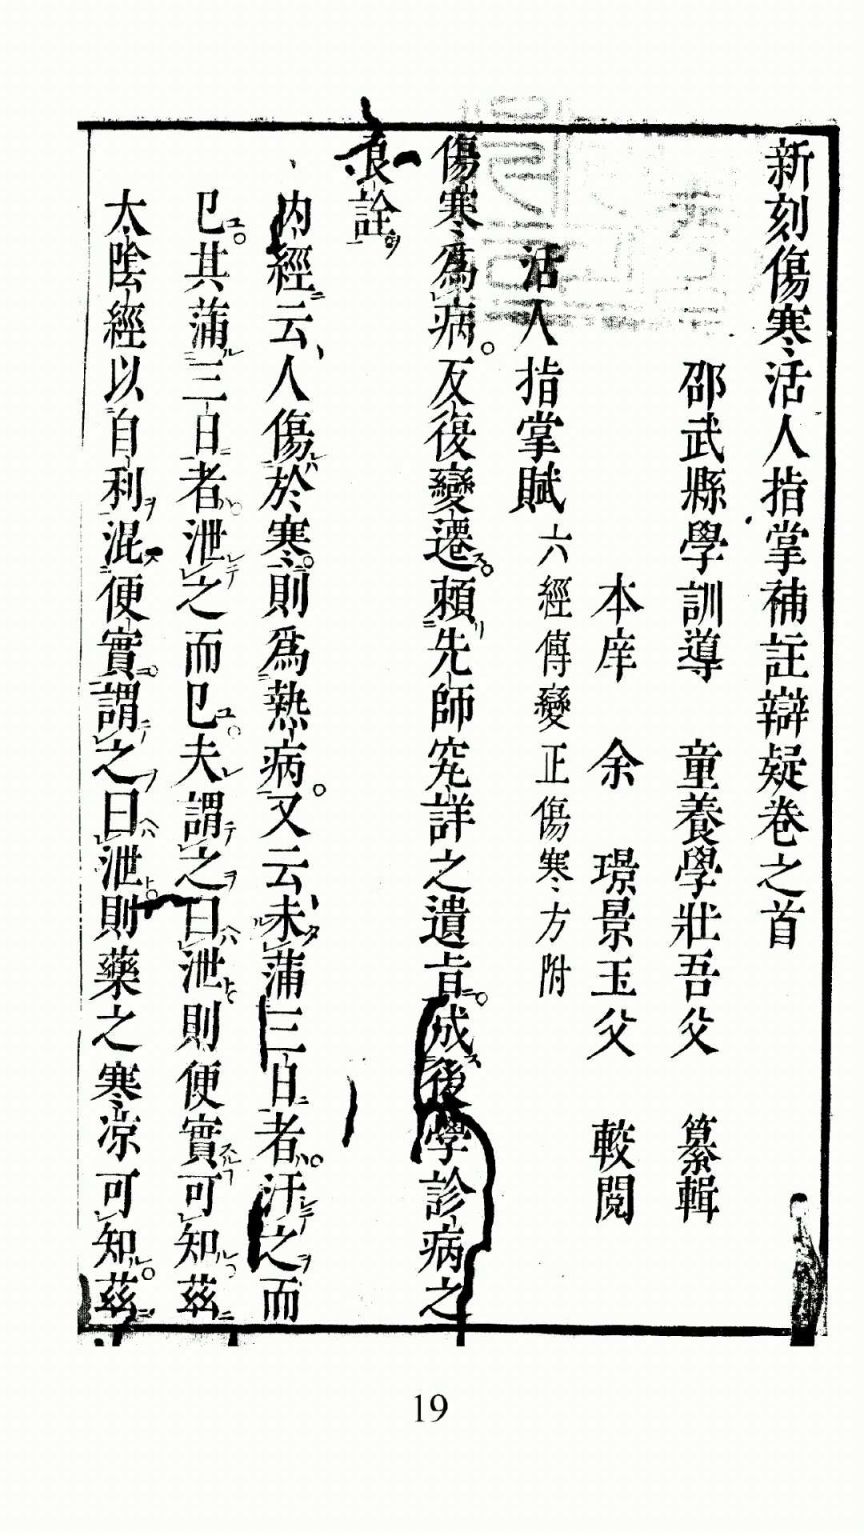 新刻傷寒活人指掌補註辯疑卷之首
邵武縣學訓導 童養學壯吾父 纂輯
本庠 余 璟景玉父 較閱
活人指掌賦 六經傳變正傷寒方附
傷寒爲病。反復變遷。賴先師究詳之遺旨。成後學診病之
良詮
内經云、人傷於寒。則爲熱病。又云、未蒲三日者。汗之而
已。其蒲三日者。泄之而已。夫謂之曰泄。則便實可知。茲
太陰經以自利混便實。謂之曰泄。則藥之寒凉可知。茲
19